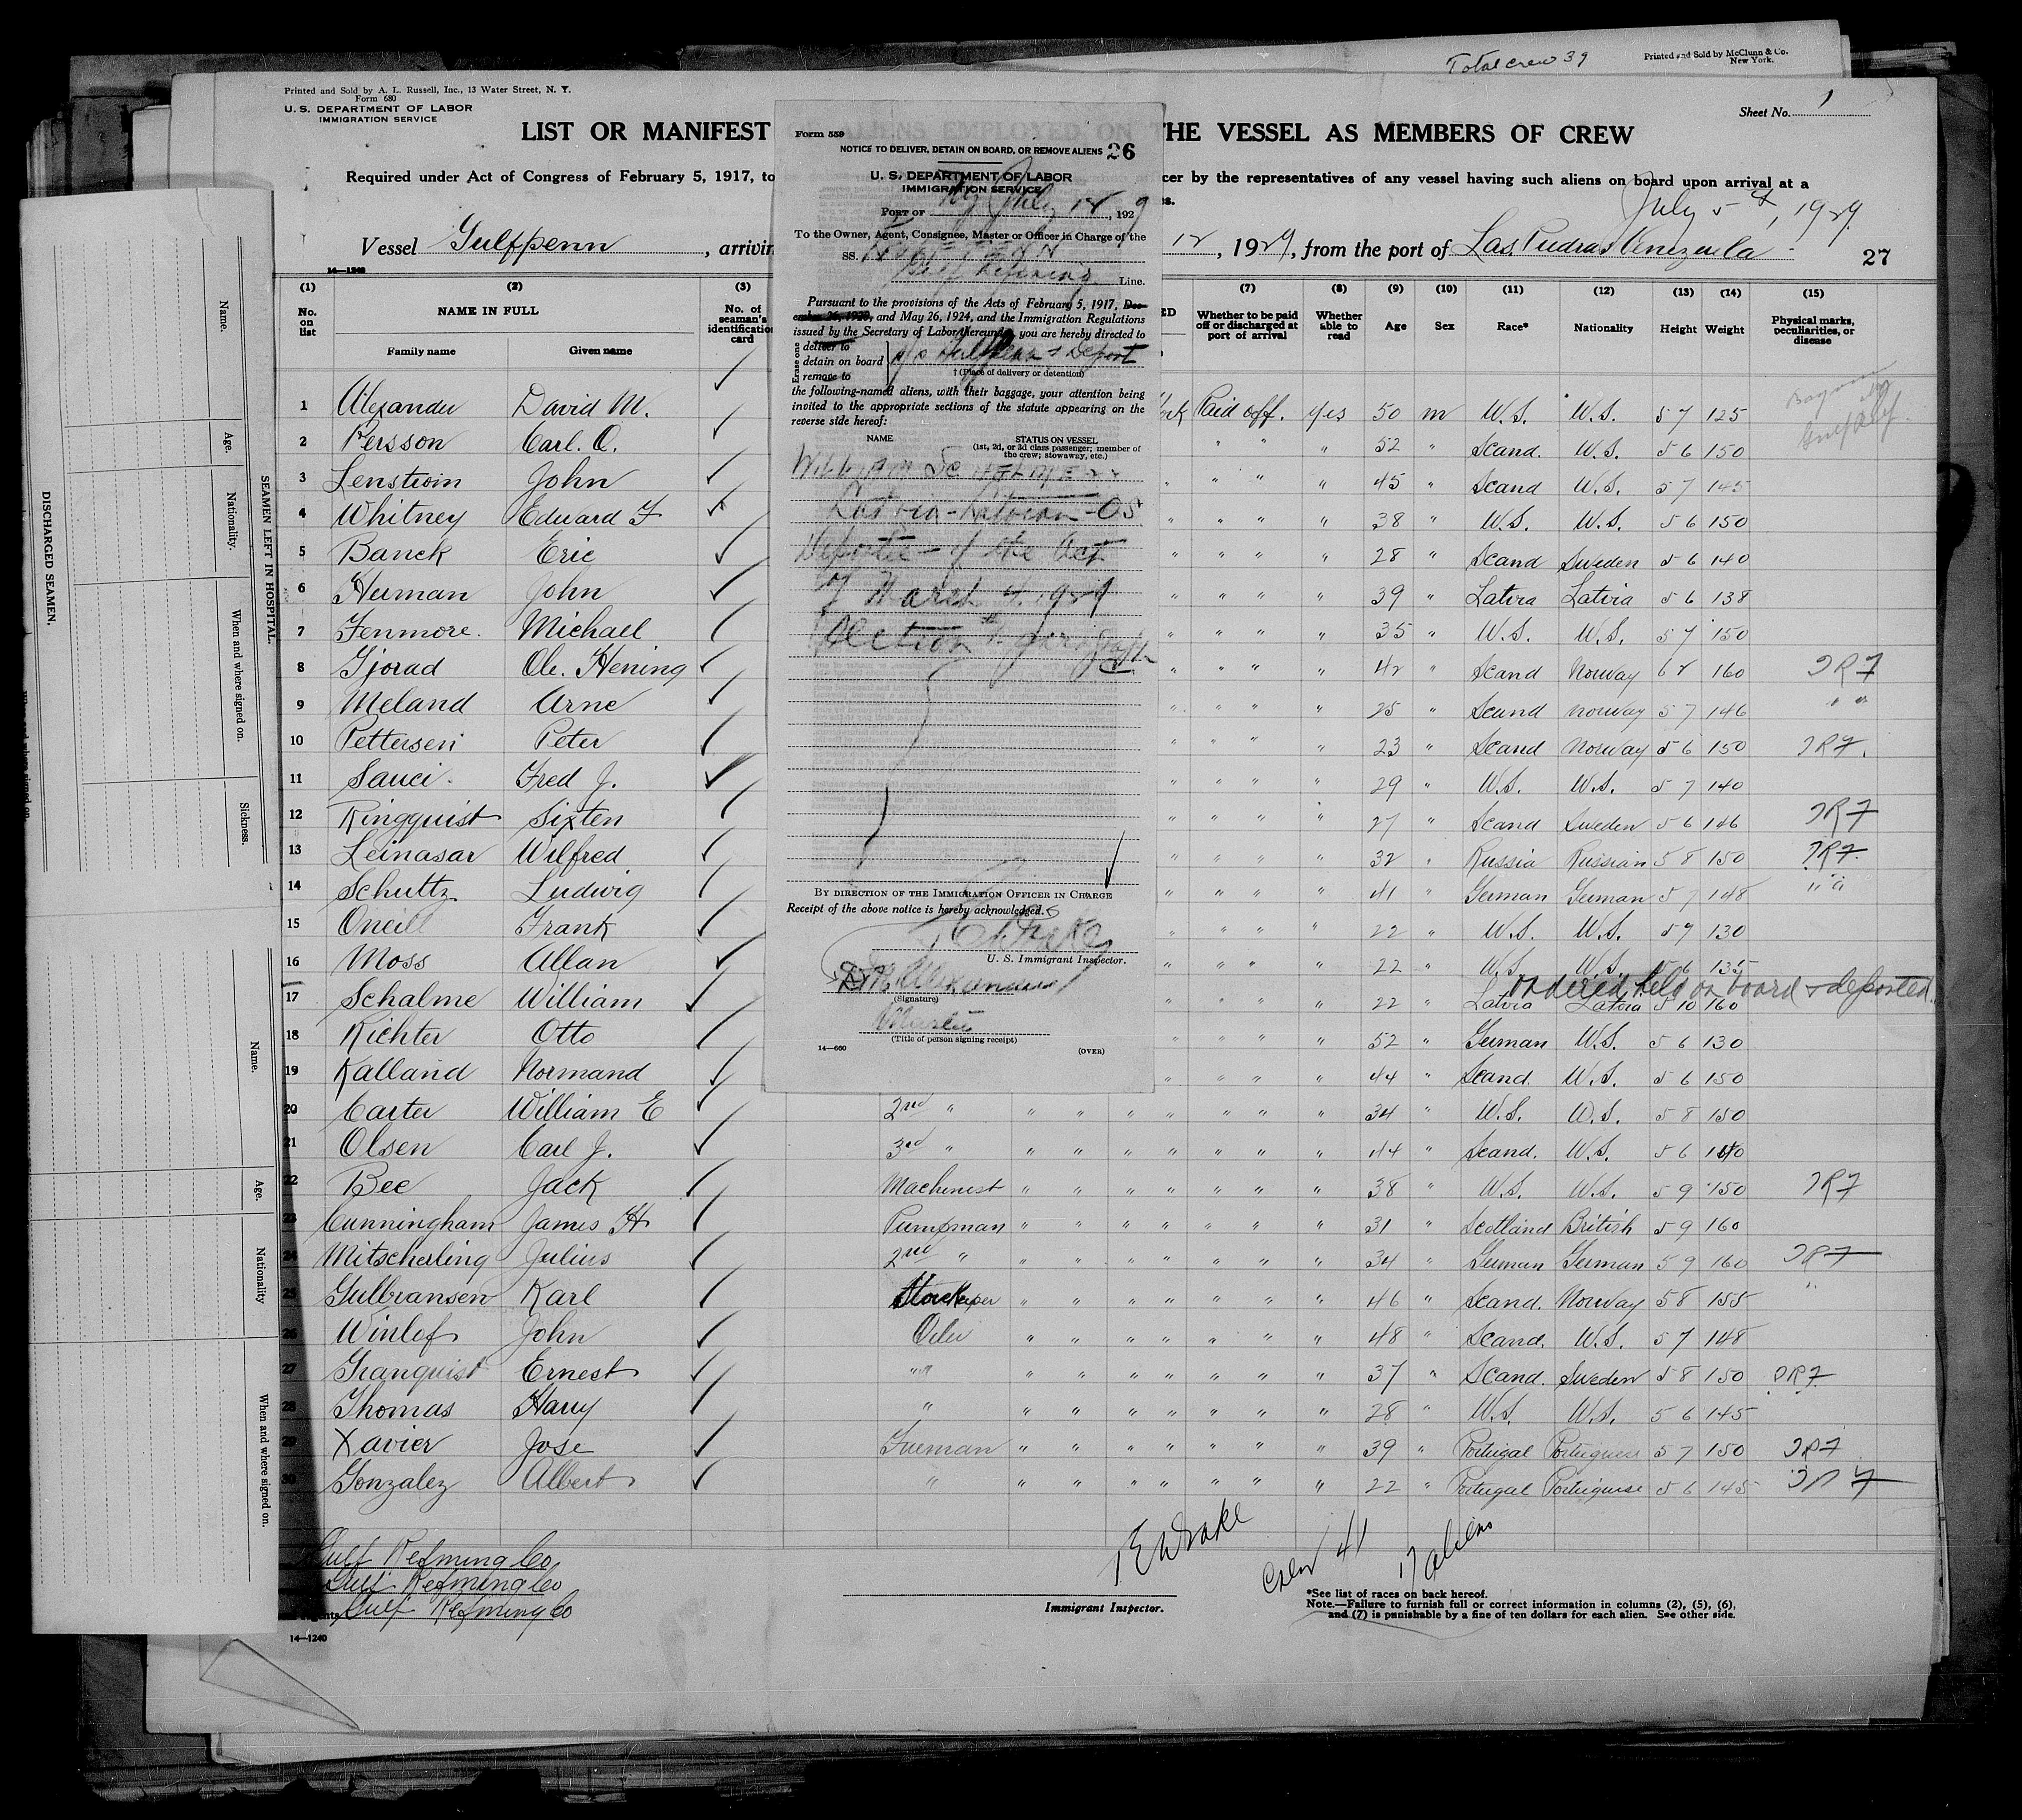 Total crew 39
Printed and Sold by McClunn & Co.
New York.
Printed and Sold by A. L. Russell, Inc., 13 Water Street, N. Y.
Form 680
U. S. DEPARTMENT OF LABOR
IMMIGRATION SERVICE
Sheet No. 1
LIST OR MANIFEST
THE VESSEL AS MEMBERS OF CREW
Required under Act of Congress of February 5, 1917, to
cer by the representatives of any vessel having such aliens on board upon arrival at a
July 5th, 1929
Vessel Gulfpenn, arrivin
12, 1929, from the port of Las Piedras Venezuela
27
14—1240
Form 559
NOTICE TO DELIVER, DETAIN ON BOARD, OR REMOVE ALIENS 26
U. S. DEPARTMENT OF LABOR
IMMIGRATION SERVICE
PORT OF NY July 12, 1929
To the Owner, Agent, Consignee, Master or Officer in Charge of the
SS.
Gulf Refining Line.
Pursuant to the provisions of the Acts of February 5, 1917, Dec-
ember 26, 1920, and May 26, 1924, and the Immigration Regulations
issued by the Secretary of Labor thereunder, you are hereby directed to
Erase one
deliver to
detain on board s/s Gulfpenn & Deport
remove to
† (Place of delivery or detention)
the following-named aliens, with their baggage, your attention being
invited to the appropriate sections of the statute appearing on the
reverse side hereof:
NAME STATUS ON VESSEL
(1st, 2d, or 3d class passenger; member of
the crew; stowaway, etc.)
William
Latvia - Latvian - OS
Deportee - of the Act
of March 4, 1929
Section
BY DIRECTION OF THE IMMIGRATION OFFICER IN CHARGE
Receipt of the above notice is hereby acknowledged.
U. S. Immigrant Inspector.
Alexander
(Signature)
Master
(Title of person signing receipt)
14—660
(OVER)
(1) (2) (3) (7) (8) (9) (10) (11) (12) (13) (14) (15)
No. on list
NAME IN FULL
Family name Given name
No. of seaman's identification card
Whether to be paid off or discharged at port of arrival
Whether able to read
Age Sex Race* Nationality Height Weight
Physical marks, peculiarities, or disease
1 Alexander David M. ✓ Paid off. yes 50 m U.S. U.S. 5 7 125
2 Persson Carl. O. ✓ " " " 52 " Scand. U.S. 5 6 150
3 Lenstrom John ✓ " " " " 45 " Scand U.S. 5 7 145
4 Whitney Edward F ✓ " " " " 38 " U.S. U.S. 5 6 150
5 Banck Eric ✓ " " " " 28 " Scand Sweden 5 6 140
6 Herman John ✓ " " " " 39 " Latvia Latvia 5 6 138
7 Fenmore. Michael ✓ " " " " 35 " U.S. U.S. 5 7 150
8 Gjorad Ole. Hening ✓ " " " " 42 " Scand Norway 6 2 160 PRF
9 Meland Arne ✓ " " " " 25 " Scand Norway 5 7 146 " "
10 Pettersen Peter ✓ " " " " 23 " Scand Norway 5 6 150 PRF.
11 Sauci. Fred J. ✓ " " " " 29 " U.S. U.S. 5 7 140
12 Ringquist Sixten ✓ " " " " 27 " Scand Sweden 5 6 146 PRF
13 Leinasar Wilfred ✓ " " " " 32 " Russia Russian 5 8 150 PRF.
14 Schultz Ludwig ✓ " " " " 41 " German German 5 7 148 " "
15 Oneill Frank ✓ " " " " 22 " U.S. U.S. 5 7 130
16 Moss Allan ✓ " " " " 22 " U.S. U.S. 5 6 135
ordered held on board & deported.
17 Schalme William ✓ " " " " 22 " Latvia Latvia 5 10 160
18 Richter Otto ✓ " " " " 52 " German U.S. 5 6 130
19 Kalland Normand ✓ " " " " 44 " Scand. U.S. 5 6 150
20 Carter William E ✓ 2nd " " " " " " " " 34 " U.S. U.S. 5 8 150
21 Olsen Carl J. ✓ 3rd " " " " " " " " 44 " Scand. U.S. 5 6 140
22 Bee Jack ✓ Machinist " " " " " " " 38 " U.S. U.S. 5 9 150 PRF
23 Cunningham James H ✓ Pumpman " " " " " " " 31 " Scotland British 5 9 160
24 Mitscherling Julius ✓ 2nd " " " " " " " " 34 " German German 5 9 160 PRF
25 Gulbransen Karl ✓ Storekeeper " " " " " " " 46 " Scand. Norway 5 8 155 "
26 Winlof John ✓ Oiler " " " " " " " 48 " Scand. U.S. 5 7 148
27 Granquist Ernest ✓ " " " " " " " " 37 " Scand. Sweden 5 8 150 PRF
28 Thomas Harry ✓ " " " " " " " " 28 " U.S. U.S. 5 6 145
29 Xavier Jose ✓ Fireman " " " " " " " 39 " Portugal Portuguese 5 7 150 PRF
30 Gonzalez Albert ✓ " " " " " " " " 22 " Portugal Portuguese 5 6 145
Gulf Refining Co
Gulf Refining Co
Gulf Refining Co
Drake
Crew 41
17 aliens
Immigrant Inspector.
*See list of races on back hereof.
Note.—Failure to furnish full or correct information in columns (2), (5), (6),
and (7) is punishable by a fine of ten dollars for each alien. See other side.
14—1240
DISCHARGED SEAMEN.
SEAMEN LEFT IN HOSPITAL.
Name.
Age.
Nationality.
When and where signed on.
Sickness.
Name.
Age.
Nationality
When and where signed on.